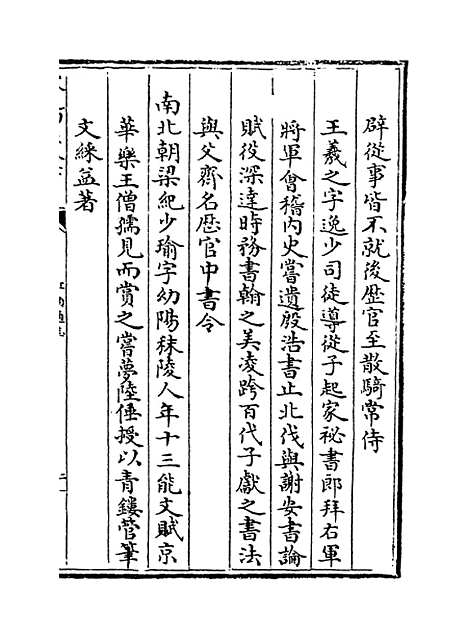 辟從事皆不就後歴官至散騎常侍
王羲之字逸少司徒導從子起家祕書郎拜右軍
將軍會稽内史嘗遺殷浩書止北伐與謝安書論
賦役深達時務書翰之美凌跨百代子獻之書法
與父齊名歴官中書令
南北朝梁紀少瑜字幼陽秣陵人年十三能文賦京
華樂王僧孺見而賞之嘗夢陸倕授以青鏤管筆
文綵益著